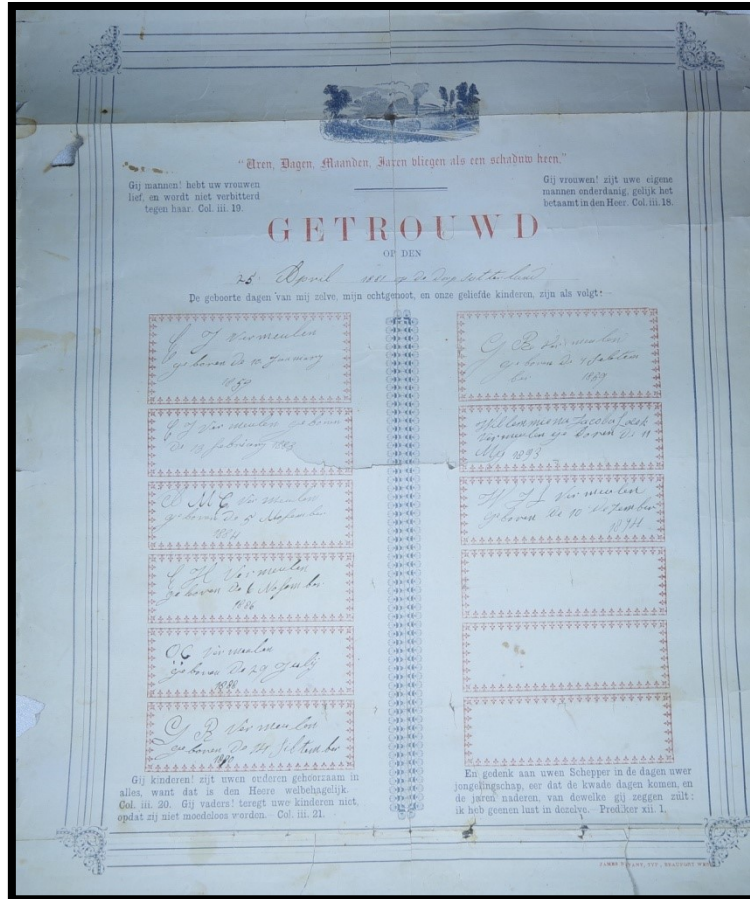 "Uren, Dagen, Maanden, Jaren vliegen als een schaduw heen."
Gij mannen! hebt uw vrouwen
lief, en wordt niet verbitterd
tegen haar. Col. iii. 19.
Gij vrouwen! zijt uwe eigene
mannen onderdanig, gelijk het
betaamt in den Heer. Col. iii. 18.
GETROUWD
OP DEN
25 April op de dag
De geboorte dagen van mij zelve, mijn echtgenoot, en onze geliefde kinderen, zijn als volgt:-
C J Vermeulen
geboren de 10 January
1859
C J Vermeulen geboren
de 19 February 1883
M C Vermeulen
geboren de 5 November
1884
C H Vermeulen
geboren de 6 November
1886
O C Vermeulen
geboren de 29 July
1888
G B Vermeulen
geboren de 14 Sebtember
G B Vermeulen
geboren de 7 Sebtem
ber
Willemmiena Jacoba
Vermeulen geboren de 11
Mij 1893
H J L Vermeulen
geboren de 10 November
Gij kinderen! zijt uwen ouderen gehoorzaam in
alles, want dat is den Heere welbehagelijk.
Col. iii. 20. Gij vaders! teregt uwe kinderen niet,
opdat zij niet moedeloos worden. Col. iii. 21.
En gedenk aan uwen Schepper in de dagen uwer
jongelingschap, eer dat de kwade dagen komen, en
de jaren naderen, van dewelke gij zeggen zult:
ik heb geenen lust in dezelve. Prediker xii. 1.